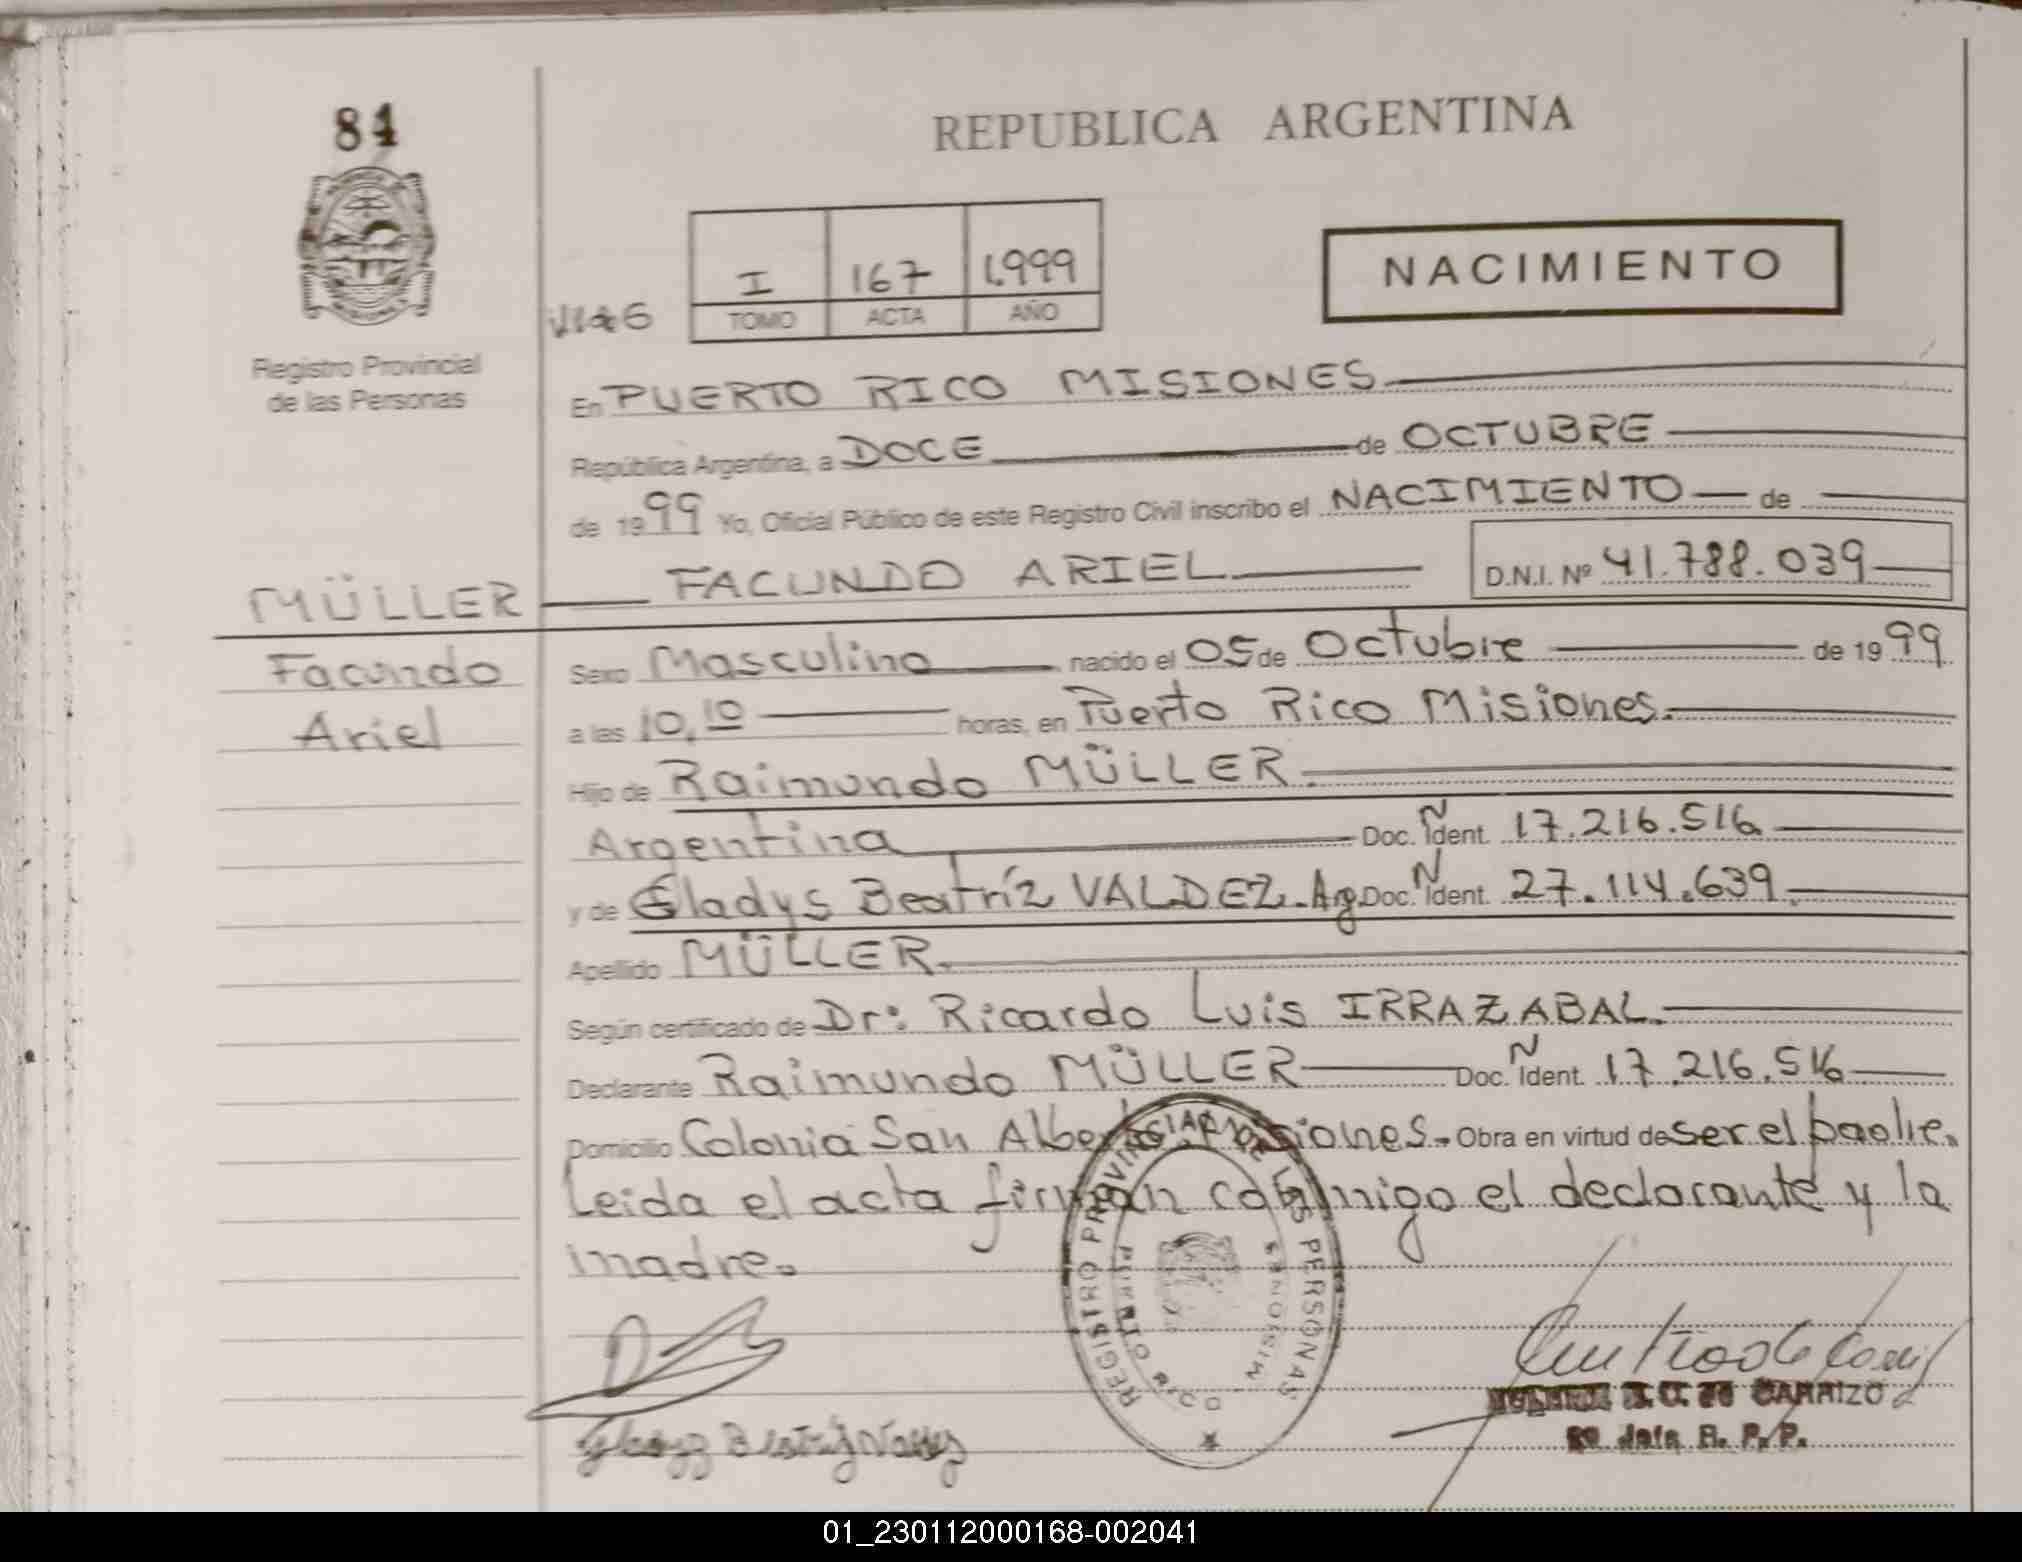 84
REPUBLICA ARGENTINA
I 167 1.999
TOMO ACTA AÑO
NACIMIENTO
Registro Provincial
de las Personas
En PUERTO RICO MISIONES
República Argentina, a DOCE de OCTUBRE
de 1999 Yo, Oficial Público de este Registro Civil inscribo el NACIMIENTO de
MÜLLER FACUNDO ARIEL D.N.I. Nº 41.788.039
Facundo
Ariel
Sexo Masculino nacido el 05 de Octubre de 1999
a las 10,10 horas, en Puerto Rico Misiones.
Hijo de Raimundo MÜLLER.
Argentina Doc. Ident. N 17.216.516
y de Gladys Beatríz VALDEZ. Arg. Doc. Ident. N 27.114.639.
Apellido MÜLLER.
Según certificado de Dr: Ricardo Luis IRRAZABAL.
Declarante Raimundo MÜLLER Doc. Ident. N 17.216.516
Domicilio Colonia San Alberto Misiones. Obra en virtud de ser el padre.
Leida el acta firman conmigo el declarante y la
madre.
REGISTRO PROVINCIAL DE LAS PERSONAS
PUERTO RICO MISIONES
CARRIZO
R. P. P.
01_230112000168-002041